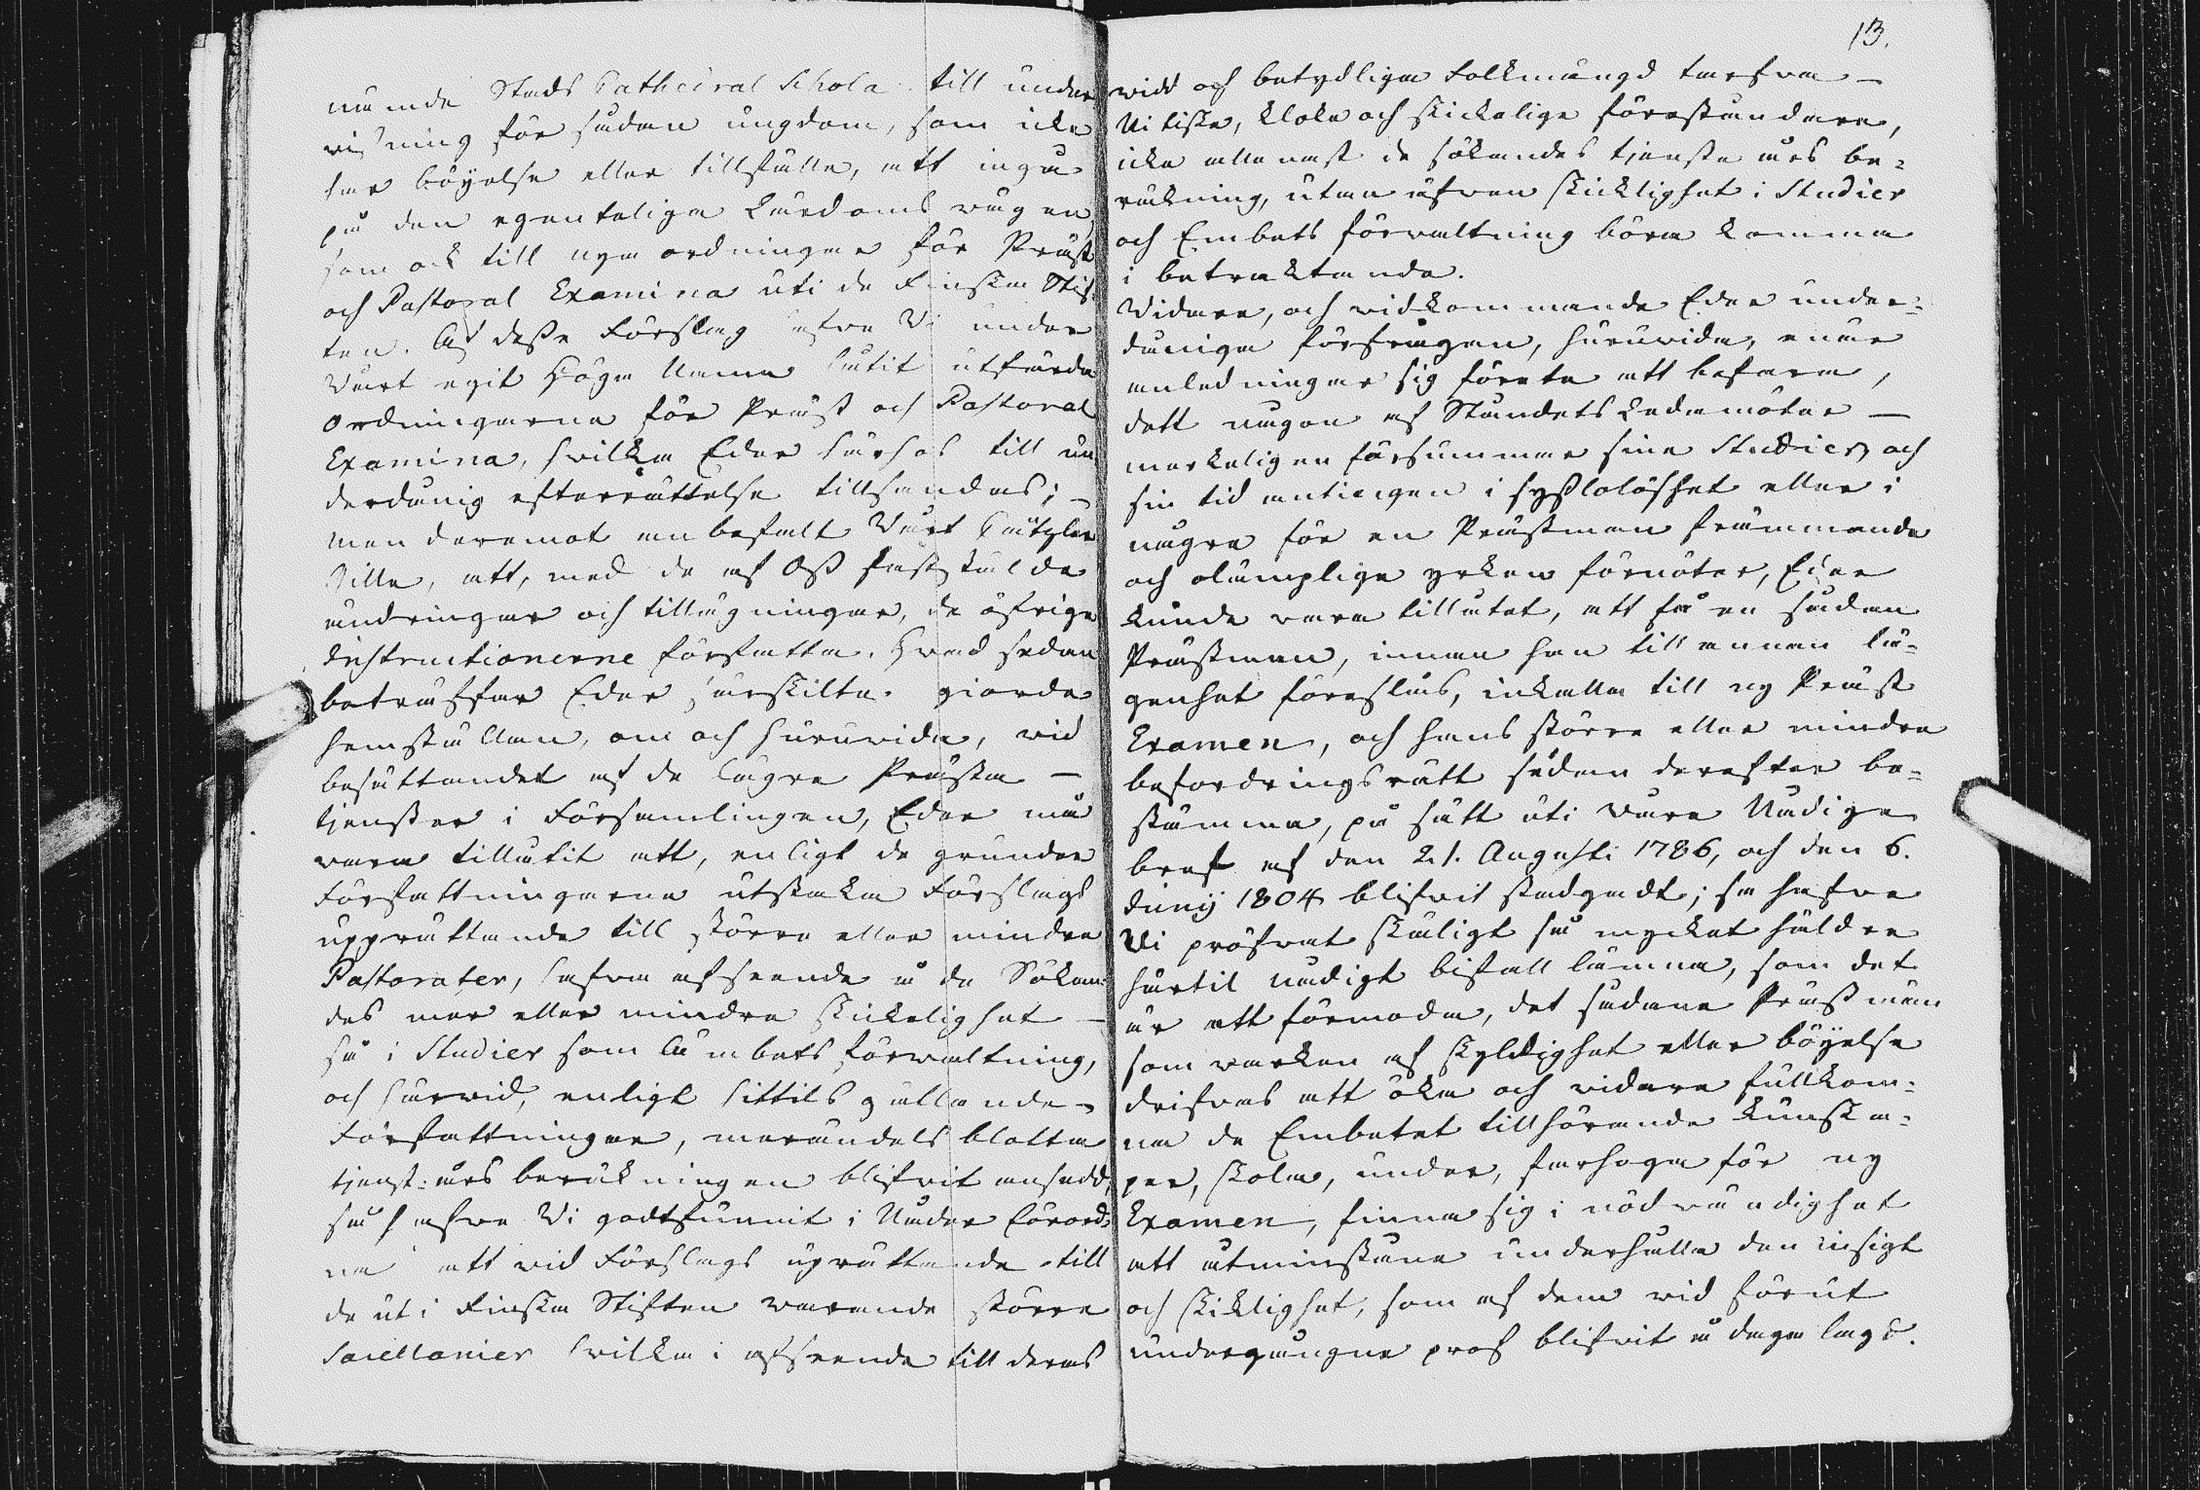 nämde Stads Cathedral Schola till under
visning för sådan ungdom, som icke
har böyelse eller tillfälle, att ingå
på den egenteliga Lärdoms vägen,
som ock till nya ordningar för Präst
och Pastoral Examina uti de Finska Stif-
ten. Af desse Förslag hafve Vi under
Vårt egit Höga Namn låtit utfärda
Ordningarna för Präst och Pastoral
Examina, hvilka Eder härhos till un
derdånig efterrättelse tillsändas; –
men deremot anbefalt Vårt Cantzlie
Gille, att, med de af Oss faststälde
ändringar och tilläggningar, de öfriga
Instructionerne författa. Hvad sedan
beträffar Eder särskilta giorde
hemställan, om och huruvida, vid
besättandet af de lägre Prästa –
tjenster i Församlingen, Eder må
vara tillåtit att, enligt de grunder
Författningarna utstaka Förslags
upprättande till större eller mindre
Pastorater, hafva afseende å de Sökan-
des mer eller mindre skickelighet –
så i Studier som Ämbets förvaltning,
och härvid, enligt hittils gällande
Författningar, merändels blotta
tjenst-års beräkningen blifvit ansedd,
så hafve Vi godtfunnit i Nåder förord-
na att vid Förslags uprättande till
de uti Finska Stiften varande större
Sacellanier hvilka i afseende till deras
13.
vidd och betydliga folkmängd tarfva –
Nitiske, kloke och skickelige föreståndare,
icke allenast de sökandes tjenste års be-
räkning, utan äfven skicklighet i Studier
och Embets förvaltning böra komma
i betraktande.
Vidare, och vidkommande Eder under-
dåniga förfrågan, huruvida, enär
anledningar sig förete att befara,
dett någon af Ståndets Ledamöter –
märkeligen försummar sine Studier, och
sin tid antingen i sysslolöshet eller i
någre för en Prästman främmande
och olämplige yrken förnöter, Eder
kunde vara tillåtet, att få en sådan
Prästman, innan han till annan lä-
genhet föreslås, inkalla till ny Präst
Examen, och hans större eller mindre
befordringsrätt sedan derefter be-
stämma, på sätt uti Våre Nådige
bref af den 21. Augusti 1786, och den 6.
Junij 1804 blifvit stadgadt; så hafve
Vi pröfvat skäligt så mycket hälder
härtil nådigt bifall lämna, som det
är att förmoda, det sådane Prästmän
som varken af skyldighet eller böyelse
drifvas att öka och vidare fullkom-
na de Embetet tillhörande kunska-
per, skola, under, farhoga för ny
Examen, finna sig i nödvändighet
att åtminstone underhålla den insigt
och skiklighet, som af dem vid förut
undergångne prof blifvit å daga lagt.